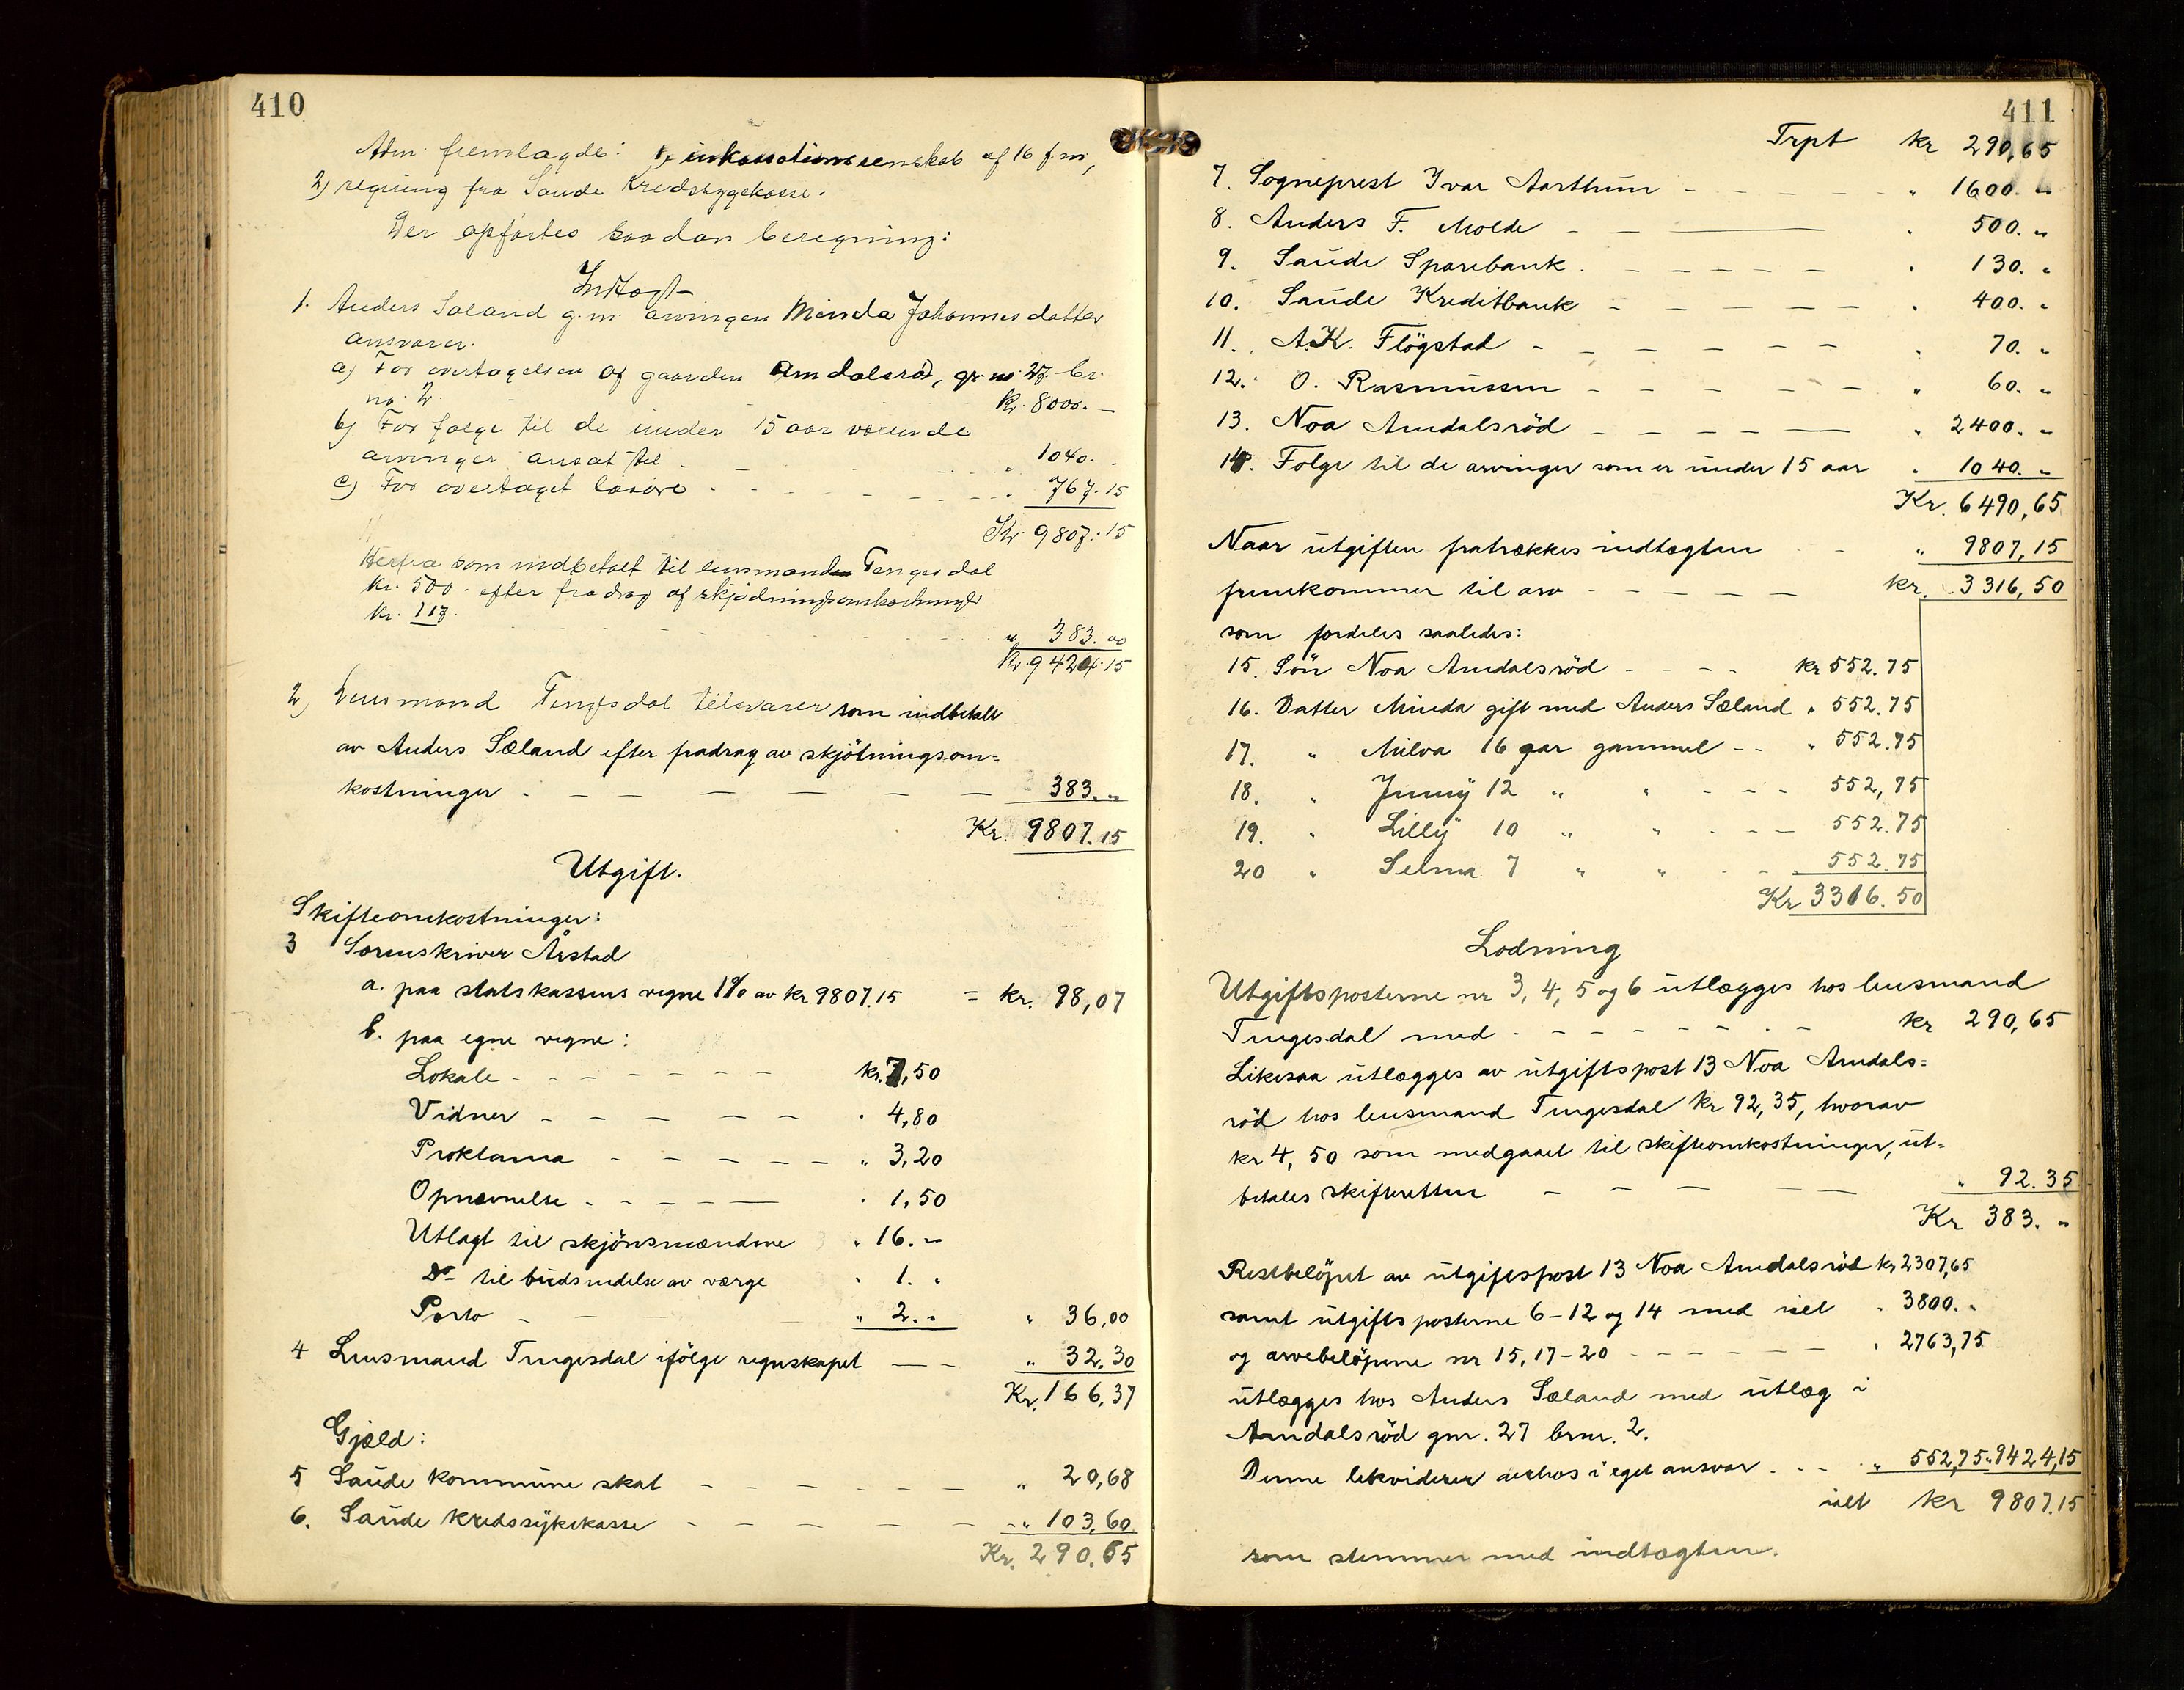 410
Adm. fremlagde: 1) inkassationsregnskab af 16 f. m.,
2) regning fra Saude Kredssygekasse.
Der opførtes saadan beregning:
Indtægt
1. Anders Sæland g. m. arvingen Minda Johannesdatter
ansvarer.
a) For overtagelsen af gaarden Amdalsrød, gr. nr. 27 br.
no. 2. Kr. 8000. –
b) For følge til de under 15 aar værende
arvinger ansat til - - „ 1040. -
c) For overtaget løsøre - - - - „ 767.15
Kr. 9807.15
Herfra som indbetalt til lensmand Tengesdal
kr. 500. efter fradrag af skjødningsomkostninger
kr. 117. - - - „ 383.00
Kr. 9424.15
2) Lensmand Tengesdal tilsvarer som indbetalt
av Anders Sæland efter fradrag av skjötningsom=
kostninger - - - - - - 383. „
Kr. 9807.15
Utgift.
Skifteomkostninger:
3 Sorenskriver Årstad
a. paa statskassens vegne 1% av kr 9807.15 = kr. 98,07
b. paa egne vegne:
Lokale - - - - - - - kr. 7,50
Vidner - - - - - - „ 4,80
Proklama - - - - - - „ 3,20
Opnævnelse - - - - - „ 1,50
Utlagt til skjönsmændene „ 16. „
Do til budsendelse av værge „ 1. „
Porto - - - „ 2. „ „ 36,00
4 Lensmand Tengesdal ifölge regnskapet — - „ 32.30
Kr. 166,37
Gjæld:
5 Saude kommune skat - - - - - - „ 20,68
6. Saude kredssykekasse - - - - - „ 103,60
Kr. 290.65
411
Trpt kr 290,65
7. Sogneprest Ivar Aarthun - - - - - „ 1600. „
8. Anders F. Molde - - ——— „ 500. „
9. Saude Sparebank. - - - - - „ 130. „
10. Saude Kreditbank - - - - - „ 400. „
11. A.K. Flögstad - - - - - - - „ 70. „
12. O. Rasmussen - - - - - - „ 60. „
13. Noa Amdalsröd - - - - — „ 2400. „
14. Fölge til de arvinger som er under 15 aar „ 1040. „
Kr. 6490,65
Naar utgiften fratrækkes indtægten - - „ 9807,15
fremkommer til arv - - - - - kr. 3316,50
som fordeles saaledes:
15. Sön Noa Amdalsröd - - - - kr 552.75
16. Datter Minda gift med Anders Sæland „ 552.75
17. „ Milva 16 aar gammel - - „ 552.75
18. „ Jenny 12 „ „ - - - 552,75
19. „ Lilly 10 „ „ - - - 552.75
20 „ Selma 7 „ „ - - 552.75
Kr 3316.50
Lodning
Utgiftsposterne nr 3, 4, 5 og 6 utlægges hos lensmand
Tengesdal med - - - - - - - - kr 290,65
Likesaa utlægges av utgiftspost 13 Noa Amdals=
röd hos lensmand Tengesdal kr 92,35, hvorav
kr 4,50 som medgaaet til skifteomkostninger, ut-
betales skifteretten - - - - — „ 92.35
Kr 383. „
Restbelöpet av utgiftspost 13 Noa Amdalsröd kr 2307,65
samt utgiftsposterne 6-12 og 14 med ialt „ 3800. „
og arvebelöpene nr 15, 17-20 - - - - - - „ 2763,75
utlægges hos Anders Sæland med utlæg i
Amdalsröd gnr. 27 brnr. 2.
Denne likviderer derhos i eget ansvar - - - „ 552,75 „ 9424,15
ialt kr 9807.15
som stemmer med indtægten.